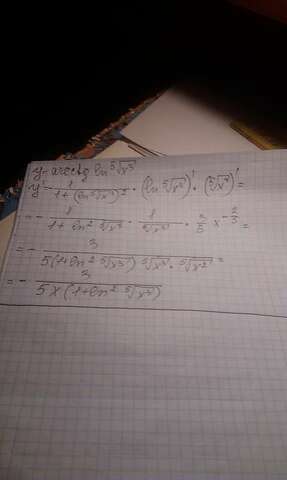 y = arcctg ln ⁵√x³
y' = - 1 / (1 + (ln ⁵√x³)²) · (ln ⁵√x³)' · (⁵√x³)' =
= - 1 / (1 + ln² ⁵√x³) · 1 / ⁵√x³ · 3/5 x^(-2/5) =
= - 3 / (5(1 + ln² ⁵√x³) ⁵√x³ · ⁵√x²) =
= - 3 / (5x(1 + ln² ⁵√x³))